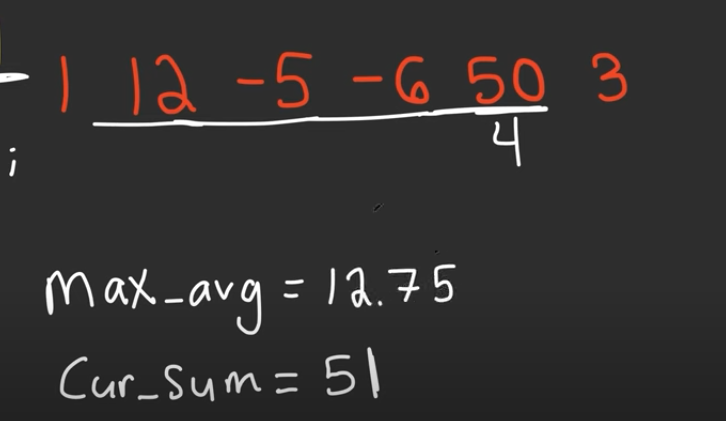 1 12 -5 -6 50 3
i 4
max_avg = 12.75
Cur_sum = 51